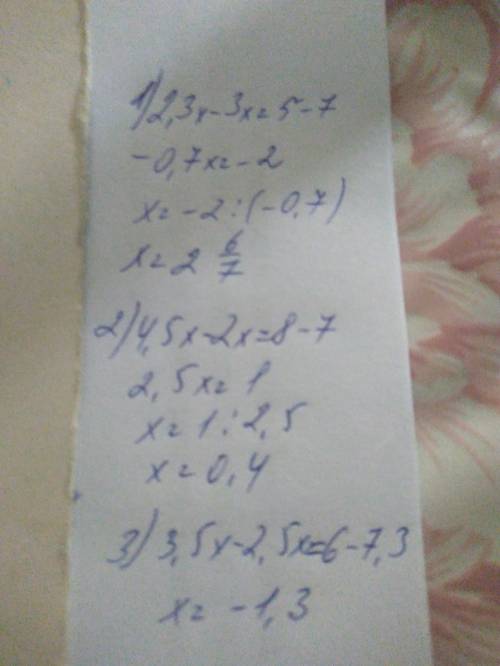 1) 2,3x-3x=5-7
-0,7x=-2
x=-2:(-0,7)
x=2 6/7
2) 4,5x-2x=8-7
2,5x=1
x=1:2,5
x=0,4
3) 3,5x-2,5x=6-7,3
x=-1,3